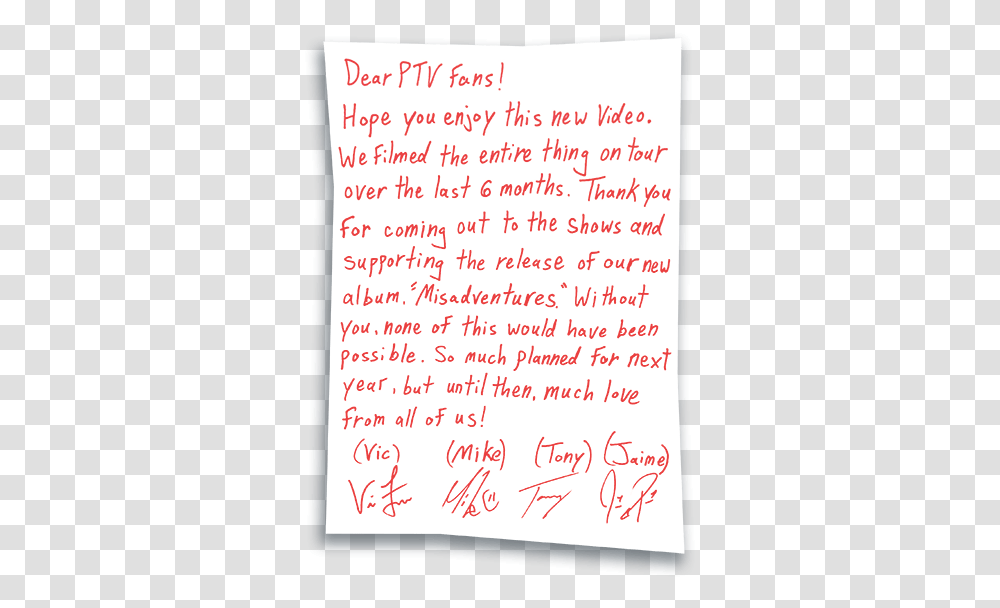 Dear PTV Fans!
Hope you enjoy this new Video.
We Filmed the entire thing on tour
over the last 6 months. Thank you
For coming out to the shows and
supporting the release of our new
album, "Misadventures." Without
you, none of this would have been
possible. So much planned for next
year, but until then, much love
from all of us!
(Vic) (Mike) (Tony) (Jaime)